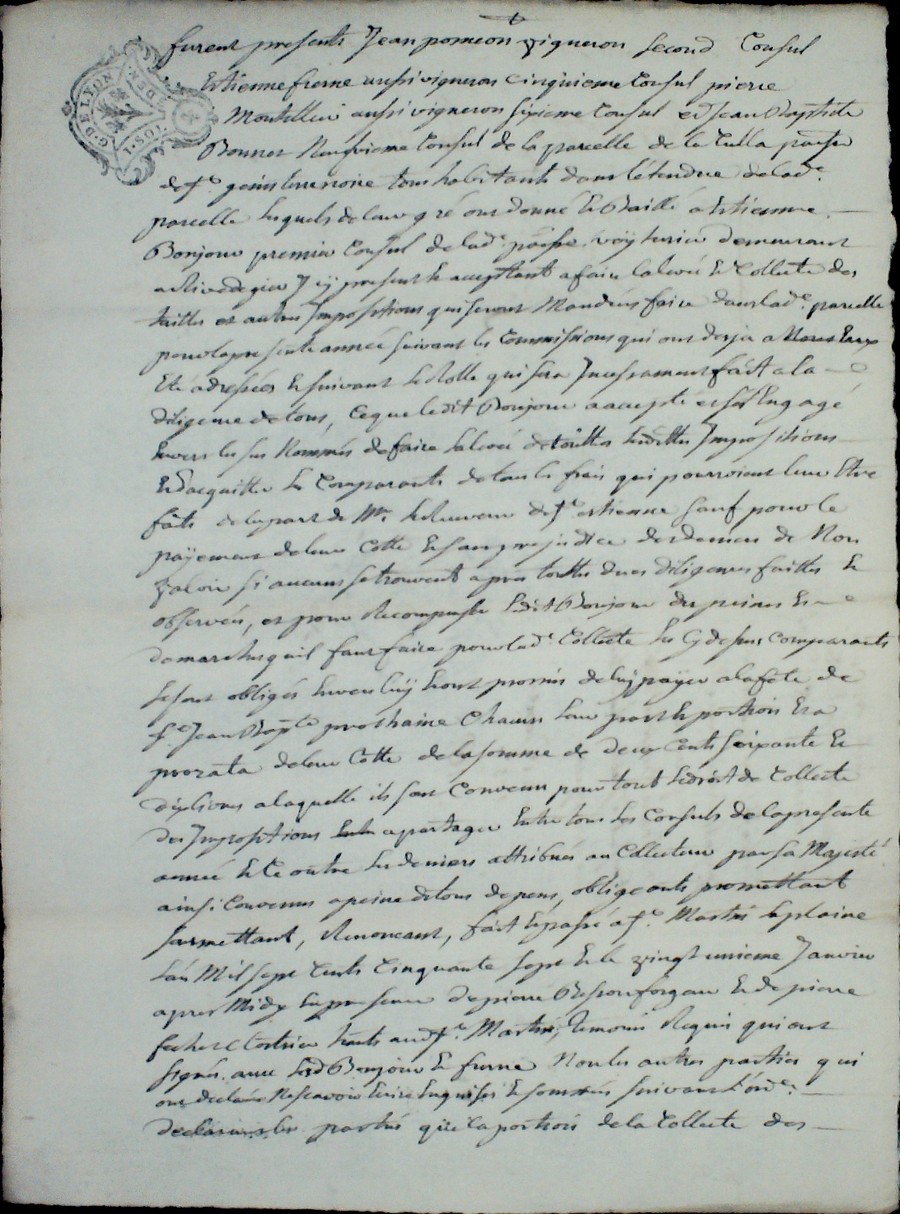 G. DE LYON
GEN. DE
1. SOL
furent presents Jean pomeon vigneron second Consul
Estienne frerne aussi vigneron Cinquieme Consul pierre
Montellier aussi vigneron Sixieme Consul et Jean Baptiste
Bonnet Neufvieme Consul de la parcelle de la Culla parsse
de St. genis terrenoire tous habitants dans l'étendue de lad.e
parcelle lesquels de leur gré ont donné et Baillé a Estienne
Bonjour premier Consul de lad.e paisse voyturier demeurant
a Rivedegier Icy present et acceptant a faire la levée et Collecte des
tailles et autres Impositions qui seront Mandées faire dans lad.e parcelle
pour la presente année suivant les Commissions qui ont desja a Nous
Eté adressées et suivant le Rolle qui sera Incessament fait a la
diligence de tous, Ce que ledit Bonjour a accepté et s'est Engagé
Envers les sus Nommés de faire la levée de touttes lesdittes Impositions
Et d'acquitter les Comparants de tous les frais qui pourroient leur Etre
faits de la part de Mr. le Receveur de St. estienne Sauf pour le
payement de leur Cotte Et sans prejudice des deniers de Non
valoir si aucuns se trouvent apres touttes dues diligences faittes Et
observées, et pour Recompenser Ledit Bonjour des peines Et
demarches qu'il faut faire pour lad.e Collecte les Cy dessus Comparants
se sont obligés Envers luy Et ont promis de luy payer a la fête de
St. Jean Bapte prochaine Chacun leur part Et portion Et a
prorata de leur Cotte de la somme de deux Cents soixante Et
dix livres a laquelle ils sont Convenus pour tout le droit de Collecte
des Impositions a partager Entre tous les Consuls de la presente
année Et Ce outre les deniers attribués au Collecteur par sa Majesté
ainsi Convenus a peine de tous depens, obligeants promettant
soumettant, Renonceant, fait Et passé a St. Martin la plaine
L'an Mil sept Cents Cinquante sept Et le vingt unieme Janvier
apres Midy En presence de pierre Besson forgeur Et de pierre
aud. St. Martin, temoins Requis qui ont
signés avec Led. Bonjour Et frerne Non les autres parties qui
ont declaré Ne scavoir Ecrire Enquises Et sommées suivant l'ord.e
les parties que la portion de la Collecte des